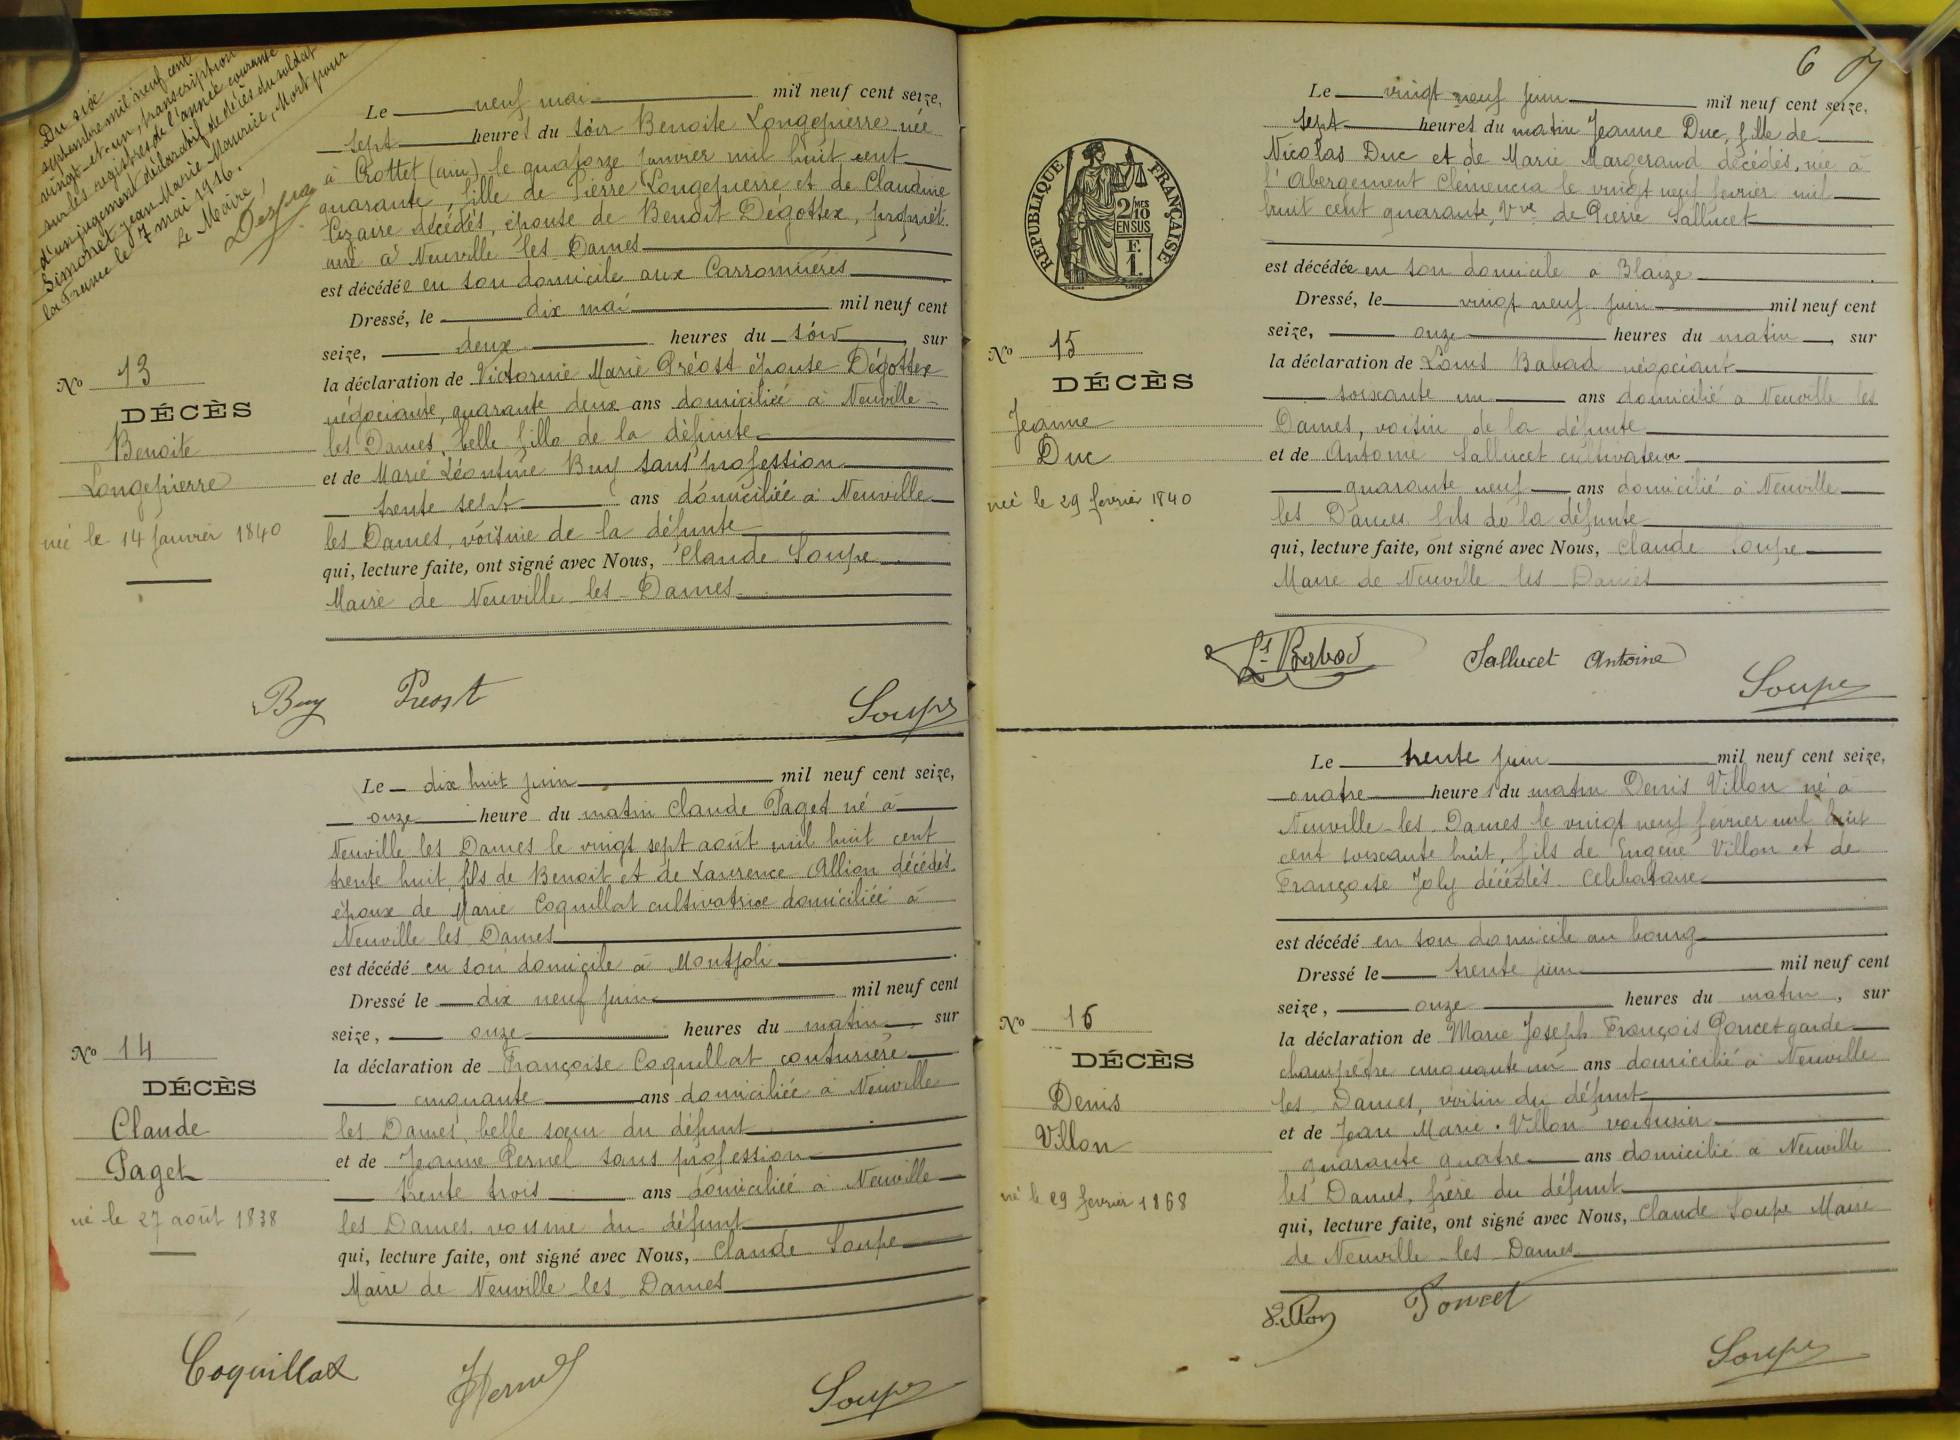 Du six
septembre mil neuf cent
vingt-et-un, transcription
sur les registres de l'année courante
d'un jugement déclaratif de décès du soldat
Simonet Jean-Marie-Maurice, Mort pour
la France le 7 mai 1916.
Le Maire,
Le neuf mai mil neuf cent seize,
sept heures du soir Benoite Longepierre née
à Crottet (ain) le quatorze janvier mil huit cent
quarante, fille de Pierre Longepierre et de Claudine
décédés, épouse de Benoît Dégottex, propriét.
aire à Neuville les Dames
est décédée en son domicile aux Carronnières
Dressé, le dix mai mil neuf cent
seize, deux heures du soir, sur
la déclaration de Victorine Marie Préost épouse Dégottex
négociante, quarante deux ans domiciliée à Neuville-
les Dames, belle fille de la défunte
et de Marie Léontine Buy sans profession
trente sept ans domiciliée à Neuville
les Dames, voisine de la défunte
qui, lecture faite, ont signé avec Nous, Claude Soupe
Maire de Neuville-les-Dames
No 13
DÉCÈS
Benoite
Longepierre
née le 14 janvier 1840
Buy Preost Soupe
Le dix huit juin mil neuf cent seize,
onze heure du matin Claude Paget né à
Neuville les Dames le vingt sept août mil huit cent
trente huit, fils de Benoît et de Laurence Allion décédés.
époux de Marie Coquillat cultivatrice domiciliée à
Neuville les Dames
est décédé en son domicile à Montjoli
Dressé le dix neuf juin mil neuf cent
seize, onze heures du matin, sur
la déclaration de Françoise Coquillat couturière
cinquante ans domiciliée à Neuville
les Dames, belle sœur du défunt
et de Jeanne Pernel sans profession
trente trois ans domiciliée à Neuville
les Dames, voisine du défunt
qui, lecture faite, ont signé avec Nous, Claude Soupe
Maire de Neuville-les-Dames
No 14
DÉCÈS
Claude
Paget
né le 27 août 1838
Coquillat Pernel Soupe
6
RÉPUBLIQUE FRANÇAISE
2/10 MES
EN SUS
F.
1.
Le vingt neuf juin mil neuf cent seize,
sept heures du matin Jeanne Duc, fille de
Nicolas Duc et de Marie Margerand décédés, née à
l'Abergement Clémencia le vingt neuf février mil
huit cent quarante, Vve de Pierre Sallucet
est décédée en son domicile à Blaize
Dressé, le vingt neuf juin mil neuf cent
seize, onze heures du matin, sur
la déclaration de Louis Babad négociant
soixante un ans domicilié à Neuville les
Dames, voisin de la défunte
et de Antoine Sallucet cultivateur
quarante neuf ans domicilié à Neuville
les Dames, fils de la défunte
qui, lecture faite, ont signé avec Nous, Claude Soupe
Maire de Neuville-les-Dames
No 15
DÉCÈS
Jeanne
Duc
née le 29 février 1840
Ls Babad Sallucet Antoine Soupe
Le trente juin mil neuf cent seize,
quatre heures du matin Denis Villon né à
Neuville-les-Dames le vingt neuf février mil huit
cent soixante huit, fils de Eugène Villon et de
Françoise Joly décédés. Célibataire
est décédé en son domicile au bourg
Dressé le trente juin mil neuf cent
seize, onze heures du matin, sur
la déclaration de Marie Joseph François Poncet garde
champêtre cinquante un ans domicilié à Neuville
les Dames, voisin du défunt
et de Jean Marie Villon voiturier
quarante quatre ans domicilié à Neuville
les Dames, frère du défunt
qui, lecture faite, ont signé avec Nous, Claude Soupe Maire
de Neuville-les-Dames
No 16
DÉCÈS
Denis
Villon
né le 29 février 1868
Villon Poncet
Soupe